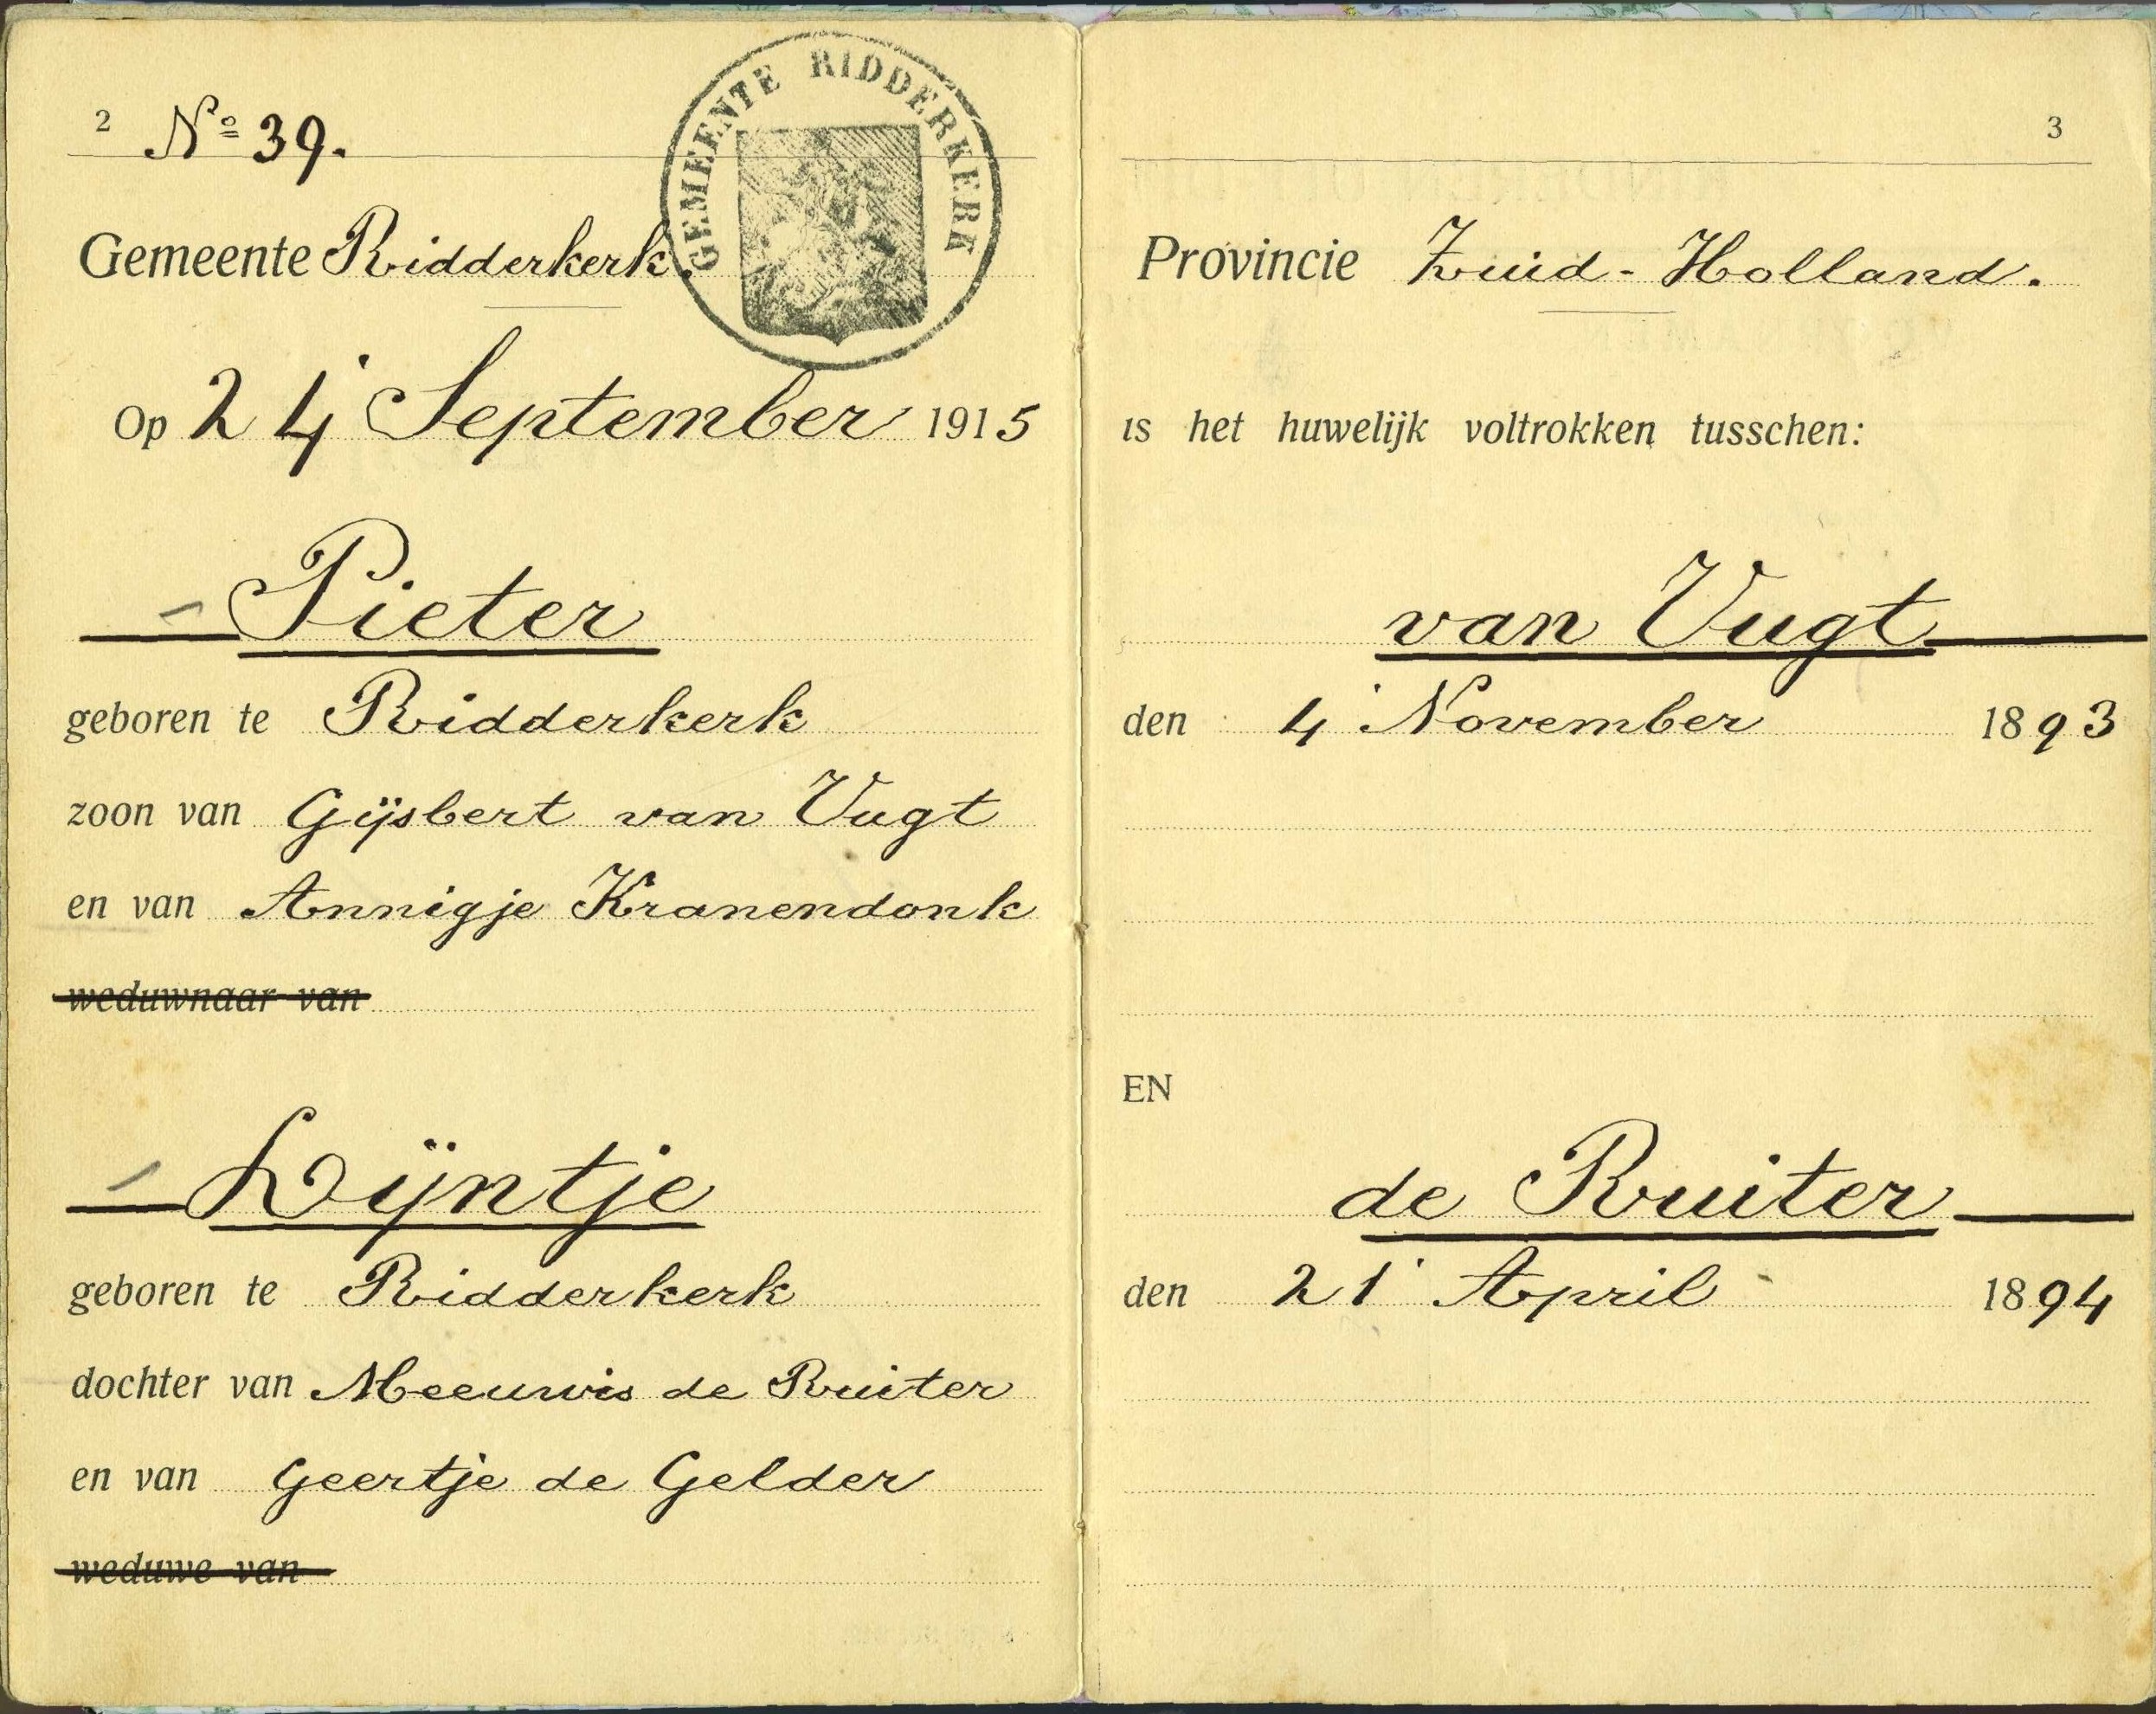 2 No 39.
GEMEENTE RIDDERKERK
Gemeente Ridderkerk.
Op 24 September 1915
Pieter
geboren te Ridderkerk
zoon van Gijsbert van Vugt
en van Annigje Kranendonk
weduwnaar van
Lijntje
geboren te Ridderkerk
dochter van Meeuwis de Ruiter
en van Geertje de Gelder
weduwe van
3
Provincie Zuid-Holland.
is het huwelijk voltrokken tusschen:
van Vugt
den 4 November 1893
EN
de Ruiter
den 21 April 1894